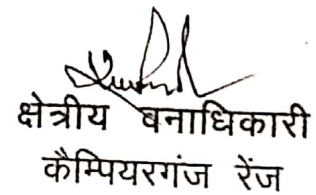 क्षेत्रीय वनाधिकारी
कैम्पियरगंज रेंज